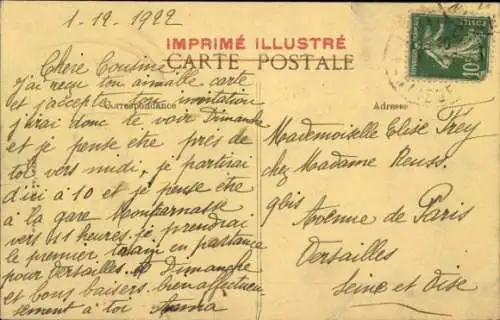 1-12-1922
IMPRIMÉ ILLUSTRÉ
CARTE POSTALE
Correspondance
Adresse
Chère Cousine
j'ai reçu ton aimable carte
et j'accepte invitation
j'irai donc te voir Dimanche
et je pense être près de
toi vers midi, je partirai
d'ici à 10 et je pense être
à la gare Montparnasse
vers 11 heures. je prendrai
le premier train en partance
pour Versailles. Dimanche
et bons baisers. bien affectueu-
sement à toi
Mademoiselle Elise Frey
chez Madame Reuss
9bis
Avenue de Paris
Versailles
Seine et Oise
10